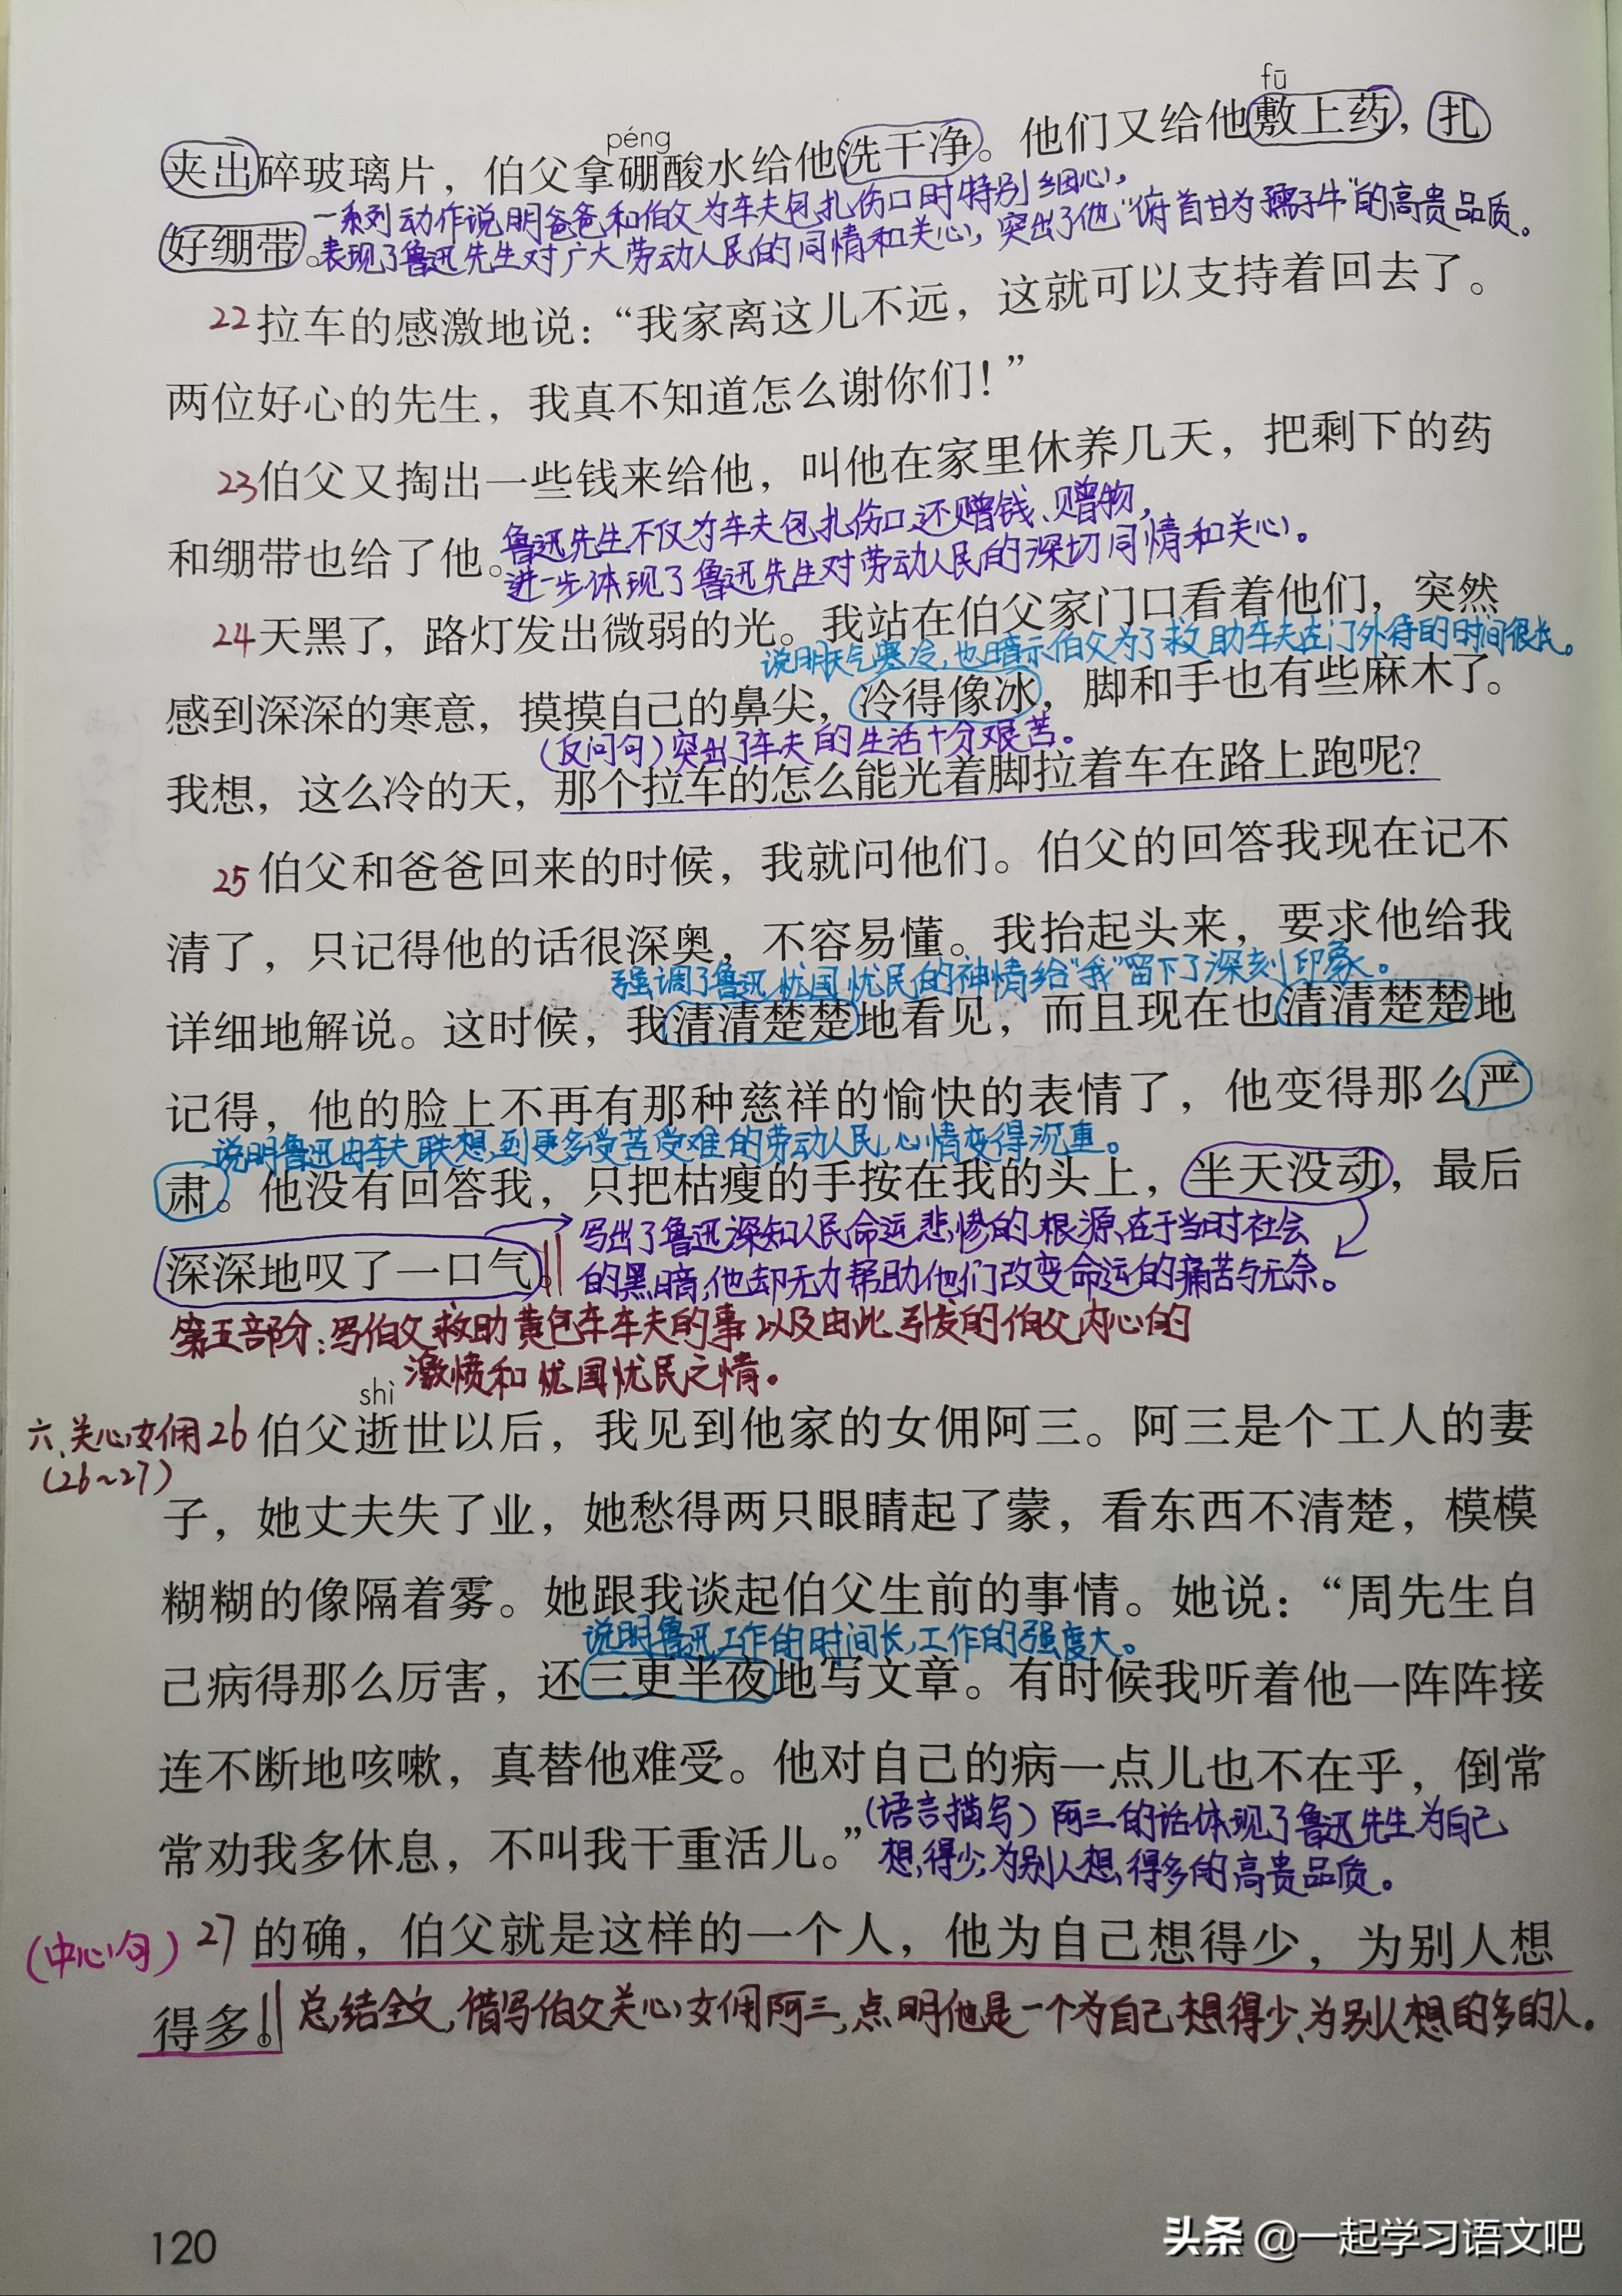 fū
péng
夹出碎玻璃片，伯父拿硼酸水给他洗干净。他们又给他敷上药，扎
一系列动作说明爸爸和伯父为车夫包扎伤口时特别细心，
好绷带。表现了鲁迅先生对广大劳动人民的同情和关心，突出了他“俯首甘为孺子牛”的高贵品质。
22拉车的感激地说：“我家离这儿不远，这就可以支持着回去了。
两位好心的先生，我真不知道怎么谢你们！”
23伯父又掏出一些钱来给他，叫他在家里休养几天，把剩下的药
和绷带也给了他。
鲁迅先生不仅为车夫包扎伤口，还赠钱、赠物，
进一步体现了鲁迅先生对劳动人民的深切同情和关心。
24天黑了，路灯发出微弱的光。我站在伯父家门口看着他们，突然
说明天气寒冷，也暗示伯父为了救助车夫在门外待的时间很长。
感到深深的寒意，摸摸自己的鼻尖，冷得像冰，脚和手也有些麻木了。
（反问句）突出了车夫的生活十分艰苦。
我想，这么冷的天，那个拉车的怎么能光着脚拉着车在路上跑呢？
25伯父和爸爸回来的时候，我就问他们。伯父的回答我现在记不
清了，只记得他的话很深奥，不容易懂。我抬起头来，要求他给我
强调了鲁迅忧国忧民的神情给“我”留下了深刻印象。
详细地解说。这时候，我清清楚楚地看见，而且现在也清清楚楚地
记得，他的脸上不再有那种慈祥的愉快的表情了，他变得那么严
说明鲁迅由车夫联想到更多受苦受难的劳动人民，心情变得沉重。
肃。他没有回答我，只把枯瘦的手按在我的头上，半天没动，最后
深深地叹了一口气。
写出了鲁迅深知人民命运悲惨的根源在于当时社会
的黑暗，他却无力帮助他们改变命运的痛苦与无奈。
第五部分：写伯父救助黄包车车夫的事以及由此引发的伯父内心的
激愤和忧国忧民之情。
shì
六、关心女佣26伯父逝世以后，我见到他家的女佣阿三。阿三是个工人的妻
（26~27）
子，她丈夫失了业，她愁得两只眼睛起了蒙，看东西不清楚，模模
糊糊的像隔着雾。她跟我谈起伯父生前的事情。她说：“周先生自
说明鲁迅工作的时间长，工作的强度大。
己病得那么厉害，还三更半夜地写文章。有时候我听着他一阵阵接
连不断地咳嗽，真替他难受。他对自己的病一点儿也不在乎，倒常
常劝我多休息，不叫我干重活儿。”
（语言描写）阿三的话体现了鲁迅先生为自己
想得少，为别人想得多的高贵品质。
（中心句）27的确，伯父就是这样的一个人，他为自己想得少，为别人想
得多。总结全文，借写伯父关心女佣阿三，点明他是一个为自己想得少、为别人想的多的人。
120
头条@一起学习语文吧